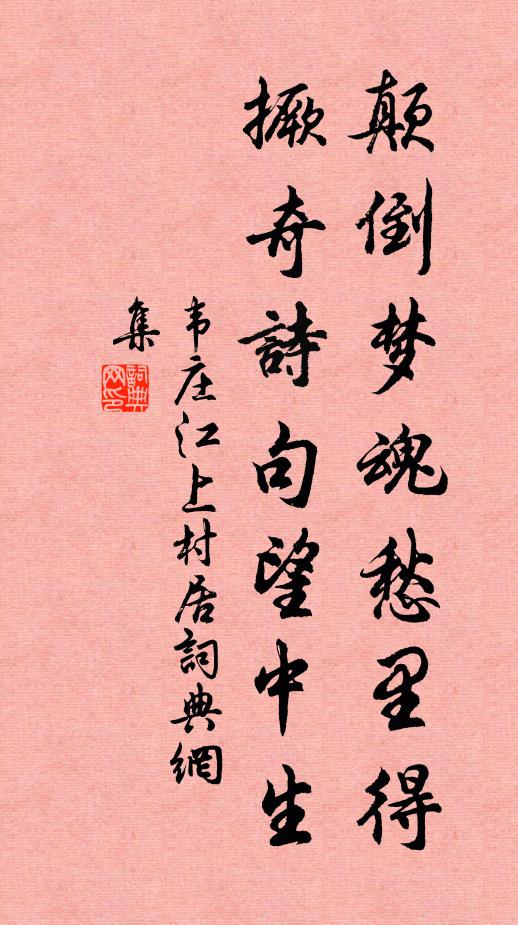 颠倒梦魂愁里得
撅奇詩句望中生
韦庄江上村居詞典網
集
詞典
网印